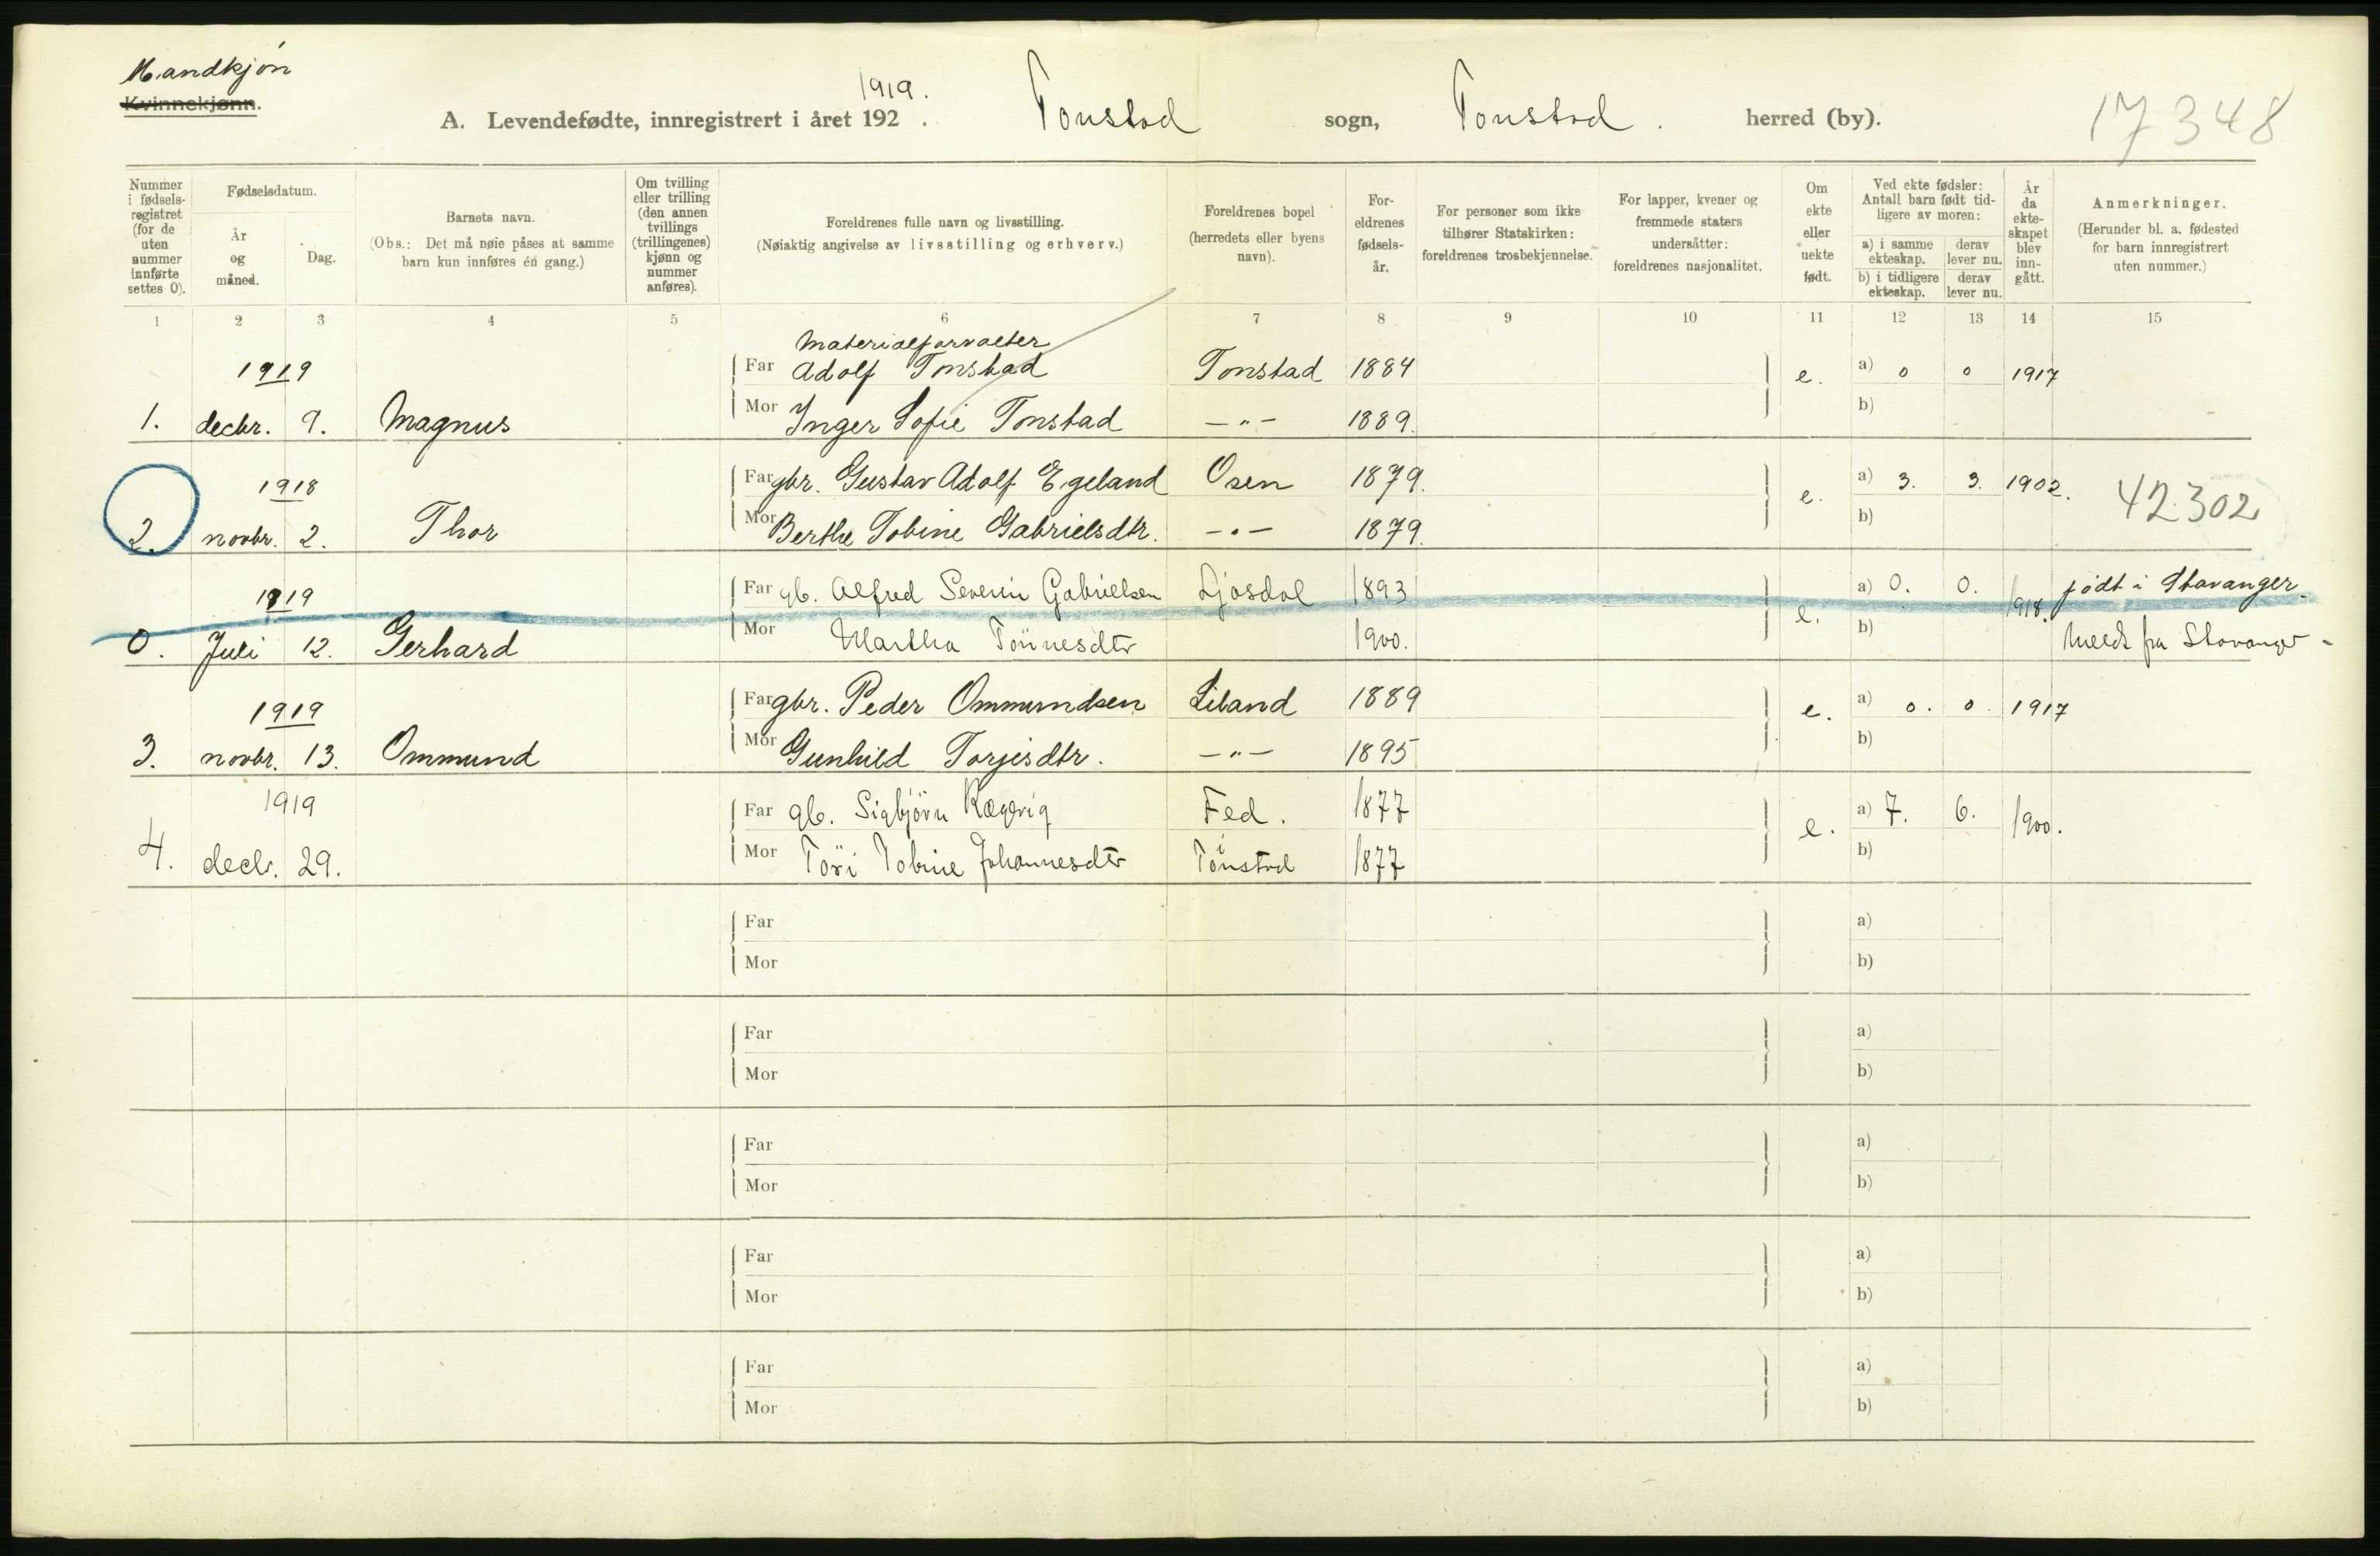 Mandkjøn
Kvinnekjønn.
A. Levendefødte, innregistrert i året 192 1919. . Tonstad sogn, Tonstad . herred (by).
17348
Nummer i fødsels-registret (for de uten nummer innførte settes 0).
Fødselsdatum.
År og måned.
Dag.
Barnets navn.
(Obs.: Det må nøie påses at samme barn kun innføres én gang.)
Om tvilling eller trilling (den annen tvillings (trillingenes) kjønn og nummer anføres).
Foreldrenes fulle navn og livsstilling.
(Nøiaktig angivelse av livsstilling og erhverv.)
Foreldrenes bopel (herredets eller byens navn).
For-eldrenes fødsels-år.
For personer som ikke tilhører Statskirken: foreldrenes trosbekjennelse.
For lapper, kvener og fremmede staters undersåtter: foreldrenes nasjonalitet.
Om ekte eller uekte født.
Ved ekte fødsler: Antall barn født tid-ligere av moren:
a) i samme ekteskap. derav lever nu.
b) i tidligere ekteskap. derav lever nu.
År da ekte-skapet blev inn-gått.
Anmerkninger.
(Herunder bl. a. fødested for barn innregistrert uten nummer.)
1 2 3 4 5 6 7 8 9 10 11 12 13 14 15
Materialforvalter
1919 Far Adolf Tonstad Tonstad 1884 e. a) 0 0 1917
1. decbr. 9. Magnus Mor Inger Sofie Tonstad —"— 1889. b)
1918 Far gbr. Gustav Adolf Egeland Osen 1879. e. a) 3. 3. 1902. 42302
2. novbr. 2. Thor Mor Berthe Tobine Gabrielsdtr. —"— 1879. b)
1919 Far gb. Alfred Severin Gabrielsen Ljosdal 1893 e. a) 0. 0. 1918. født i Stavanger.
0. Juli 12. Gerhard Mor Martha Tönnesdtr 1900. b) Meldt fra Stavanger -
1919 Far gbr. Peder Ommundsen Liland 1889 e. a) 0. 0. 1917
3. novbr. 13. Ommund Mor Gunhild Torjesdtr. —"— 1895 b)
1919 Far gb. Sigbjörn Fed. 1877 e. a) 7. 6. 1900.
4. decbr. 29. Mor Töri Tobine Johannesdtr i Tonstad 1877 b)
Far a)
Mor b)
Far a)
Mor b)
Far a)
Mor b)
Far a)
Mor b)
Far a)
Mor b)